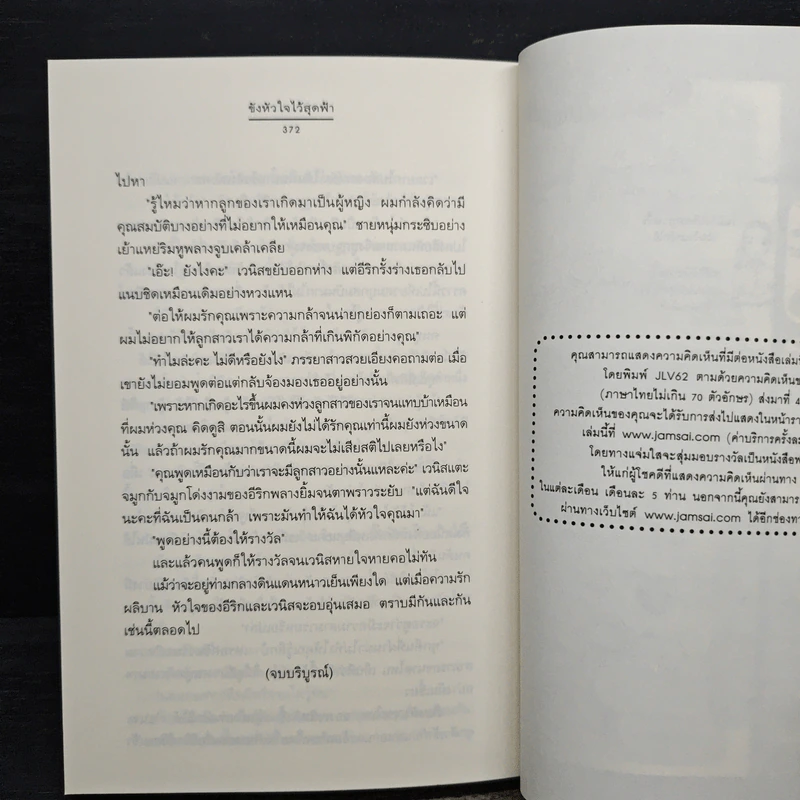 ขังหัวใจไว้สุดฟ้า
372
ไปหา
"รู้ไหมว่าหากลูกของเราเกิดมาเป็นผู้หญิง ผมกำลังคิดว่ามี
คุณสมบัติบางอย่างที่ไม่อยากให้เหมือนคุณ" ชายหนุ่มกระซิบอย่าง
เย้าแหย่ริมหูพลางจูบเคล้าเคลีย
"เอ๊ะ! ยังไงคะ" เวนิสขยับออกห่าง แต่อีริกรั้งร่างเธอกลับไป
แนบชิดเหมือนเดิมอย่างหวงแหน
"ต่อให้ผมรักคุณเพราะความกล้าจนน่ายกย่องก็ตามเถอะ แต่
ผมไม่อยากให้ลูกสาวเราได้ความกล้าที่เกินพิกัดอย่างคุณ"
"ทำไมล่ะคะ ไม่ดีหรือยังไง" ภรรยาสาวสวยเอียงคอถามต่อ เมื่อ
เขายังไม่ยอมพูดต่อแต่กลับจ้องมองเธออยู่อย่างนั้น
"เพราะหากเกิดอะไรขึ้นผมคงห่วงลูกสาวของเราจนแทบบ้าเหมือน
ที่ผมห่วงคุณ คิดดูสิ ตอนนั้นผมยังไม่ได้รักคุณเท่านี้ผมยังห่วงขนาด
นั้น แล้วถ้าผมรักคุณมากขนาดนี้ผมจะไม่เสียสติไปเลยหรือไง"
"คุณพูดเหมือนกับว่าเราจะมีลูกสาวอย่างนั้นแหละค่ะ" เวนิสแตะ
จมูกกับจมูกโด่งงามของอีริกพลางยิ้มจนตาพราวระยับ "แต่ฉันดีใจ
นะคะที่ฉันเป็นคนกล้า เพราะมันทำให้ฉันได้หัวใจคุณมา"
"พูดอย่างนี้ต้องให้รางวัล"
และแล้วคนพูดก็ให้รางวัลจนเวนิสหายใจหายคอไม่ทัน
แม้ว่าจะอยู่ท่ามกลางดินแดนหนาวเย็นเพียงใด แต่เมื่อความรัก
ผลิบาน หัวใจของอีริกและเวนิสจะอบอุ่นเสมอ ตราบมีกันและกัน
เช่นนี้ตลอดไป
(จบบริบูรณ์)
คุณสามารถแสดงความคิดเห็นที่มีต่อหนังสือเล่มนี้
โดยพิมพ์ JLV62 ตามด้วยความคิดเห็นข
(ภาษาไทยไม่เกิน 70 ตัวอักษร) ส่งมาที่ 4
ความคิดเห็นของคุณจะได้รับการส่งไปแสดงในหน้าราย
เล่มนี้ที่ www.jamsai.com (ค่าบริการครั้งละ
โดยทางแจ่มใสจะสุ่มมอบรางวัลเป็นหนังสือพ
ให้แก่ผู้โชคดีที่แสดงความคิดเห็นผ่านทาง
ในแต่ละเดือน เดือนละ 5 ท่าน นอกจากนี้คุณยังสามาร
ผ่านทางเว็บไซต์ www.jamsai.com ได้อีกช่องทา